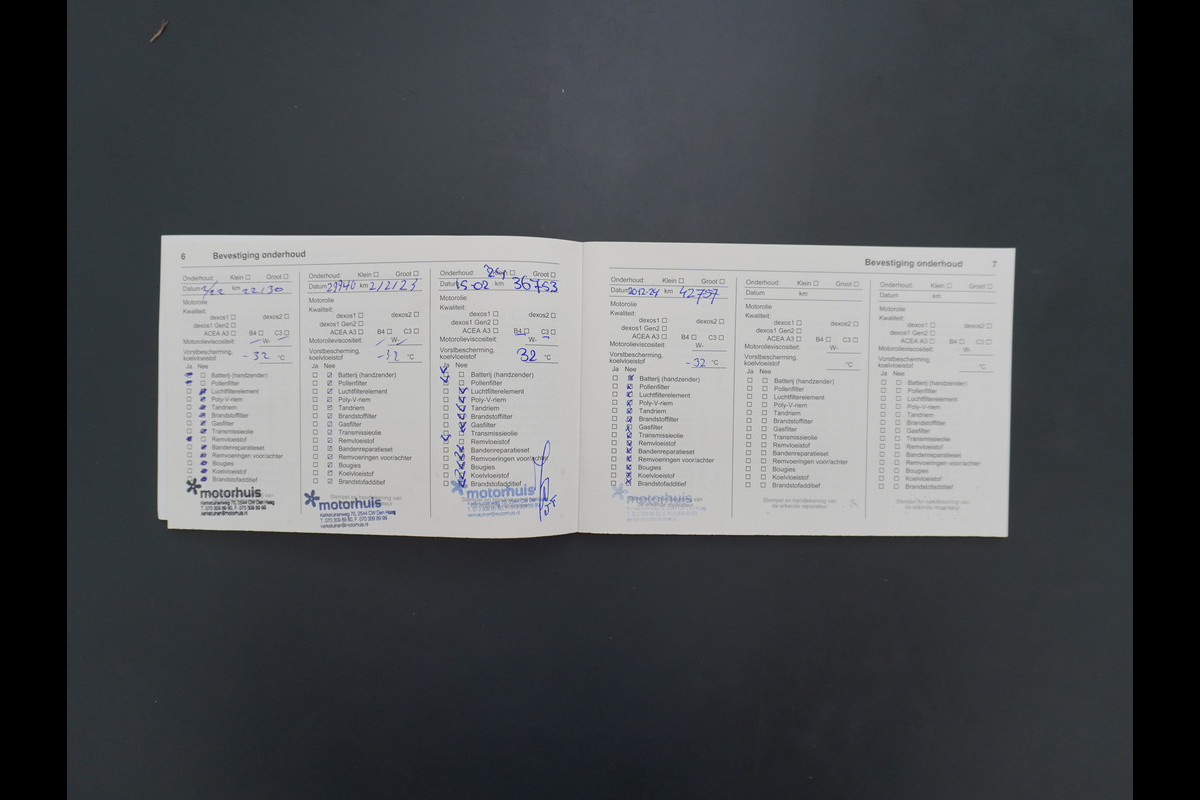 6 Bevestiging onderhoud
Onderhoud: Klein Groot
Datum km 22130
Motorolie
Kwaliteit:
dexos1 dexos2
dexos1 Gen2
ACEA A3 B4 C3
Motorolieviscositeit: W-
Vorstbescherming,
koelvloeistof -32 °C
Ja Nee
Batterij (handzender)
Pollenfilter
Luchtfilterelement
Poly-V-riem
Tandriem
Brandstoffilter
Gasfilter
Transmissieolie
Remvloeistof
Bandenreparatieset
Remvoeringen voor/achter
Bougies
Koelvloeistof
Brandstofadditief
motorhuis
Kerketuinenweg 70, 2544 CW Den Haag
T. 070 309 89 80, F. 070 309 89 99
Onderhoud: Klein Groot
Datum 29940 km 2/2/23
Motorolie
Kwaliteit:
dexos1 dexos2
dexos1 Gen2
ACEA A3 B4 C3
Motorolieviscositeit: W-
Vorstbescherming,
koelvloeistof -32 °C
Ja Nee
Batterij (handzender)
Pollenfilter
Luchtfilterelement
Poly-V-riem
Tandriem
Brandstoffilter
Gasfilter
Transmissieolie
Remvloeistof
Bandenreparatieset
Remvoeringen voor/achter
Bougies
Koelvloeistof
Brandstofadditief
motorhuis
Kerketuinenweg 70, 2544 CW Den Haag
T. 070 309 89 80, F. 070 309 89 99
Onderhoud: Groot
Datum 15-02 km 36753
Motorolie
Kwaliteit:
dexos1 dexos2
dexos1 Gen2
ACEA A3 B4 C3
Motorolieviscositeit: W-
Vorstbescherming,
koelvloeistof 32 °C
Ja Nee
Batterij (handzender)
Pollenfilter
Luchtfilterelement
Poly-V-riem
Tandriem
Brandstoffilter
Gasfilter
Transmissieolie
Remvloeistof
Bandenreparatieset
Remvoeringen voor/achter
Bougies
Koelvloeistof
Brandstofadditief
motorhuis
Bevestiging onderhoud 7
Onderhoud: Klein Groot
Datum 2012-24 km 42797
Motorolie
Kwaliteit:
dexos1 dexos2
dexos1 Gen2
ACEA A3 B4 C3
Motorolieviscositeit: W-
Vorstbescherming,
koelvloeistof -32 °C
Ja Nee
Batterij (handzender)
Pollenfilter
Luchtfilterelement
Poly-V-riem
Tandriem
Brandstoffilter
Gasfilter
Transmissieolie
Remvloeistof
Bandenreparatieset
Remvoeringen voor/achter
Bougies
Koelvloeistof
Brandstofadditief
motorhuis
Onderhoud: Klein Groot
Datum km
Motorolie
Kwaliteit:
dexos1 dexos2
dexos1 Gen2
ACEA A3 B4 C3
Motorolieviscositeit: W-
Vorstbescherming,
koelvloeistof °C
Ja Nee
Batterij (handzender)
Pollenfilter
Luchtfilterelement
Poly-V-riem
Tandriem
Brandstoffilter
Gasfilter
Transmissieolie
Remvloeistof
Bandenreparatieset
Remvoeringen voor/achter
Bougies
Koelvloeistof
Brandstofadditief
Stempel en handtekening van
de erkende reparateur
Onderhoud: Klein Groot
Datum km
Motorolie
Kwaliteit:
dexos1 dexos2
dexos1 Gen2
ACEA A3 B4 C3
Motorolieviscositeit: W-
Vorstbescherming,
koelvloeistof °C
Ja Nee
Batterij (handzender)
Pollenfilter
Luchtfilterelement
Poly-V-riem
Tandriem
Brandstoffilter
Gasfilter
Transmissieolie
Remvloeistof
Bandenreparatieset
Remvoeringen voor/achter
Bougies
Koelvloeistof
Brandstofadditief
Stempel en handtekening van
de erkende reparateur